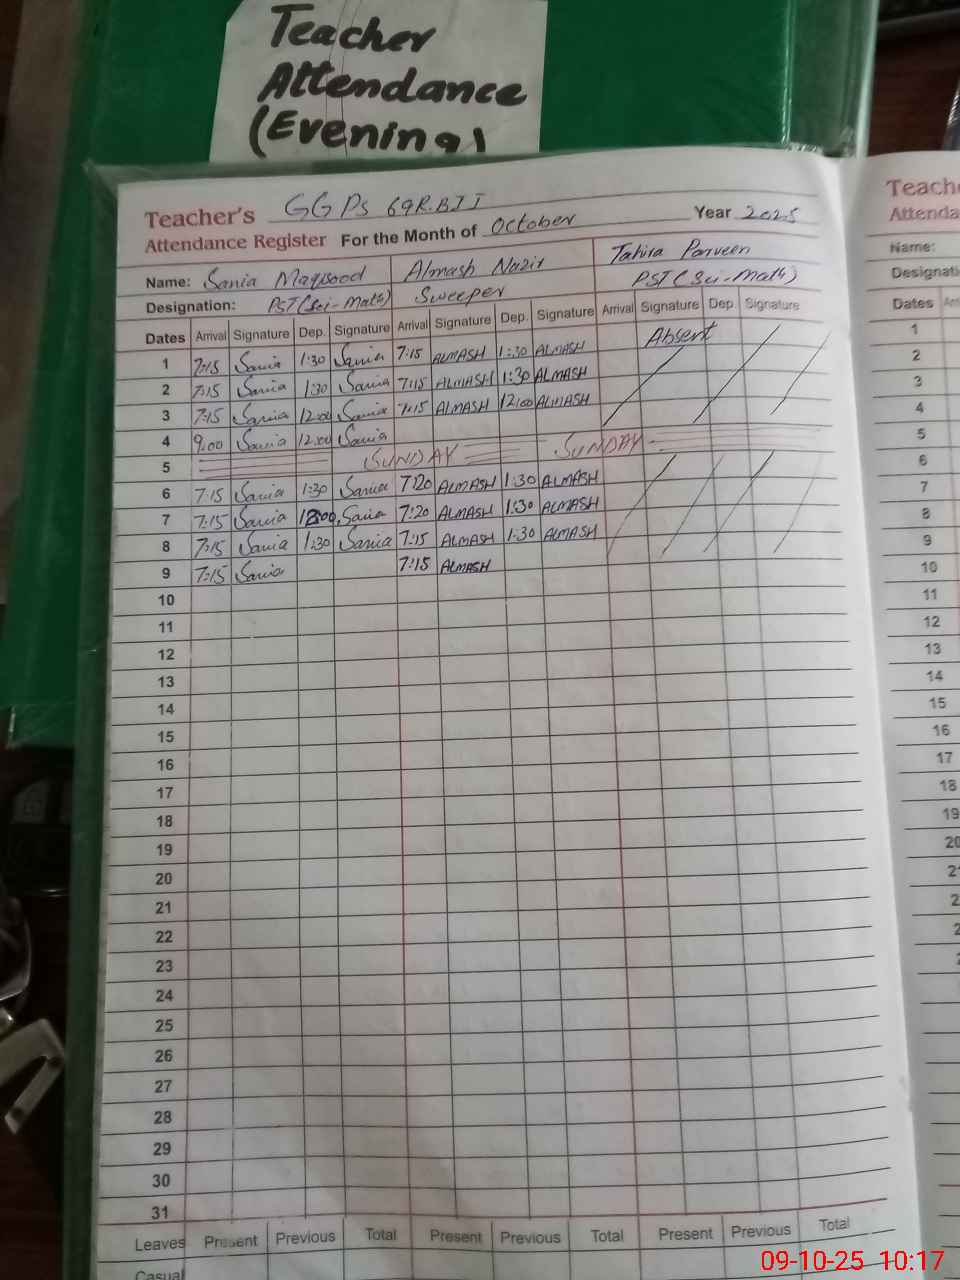 Teacher
Attendance
(Evening)
Teacher's GGPS 69R.BII
Attendance Register For the Month of October Year 2025
Name: Sania Maqsood Almash Nazir Tahira Parveen
Designation: PST(Sci-Math) Sweeper PST(Sci-Math)
Dates Arrival Signature Dep. Signature Arrival Signature Dep. Signature Arrival Signature Dep. Signature
1 7:15 Sania 1:30 Sania 7:15 ALMASH 1:30 ALMASH Absent
2 7:15 Sania 1:30 Sania 7:15 ALMASH 1:30 ALMASH
3 7:15 Sania 12:00 Sania 7:15 ALMASH 12:00 ALMASH
4 9:00 Sania 12:00 Sania
5 SUNDAY SUNDAY
6 7:15 Sania 1:30 Sania 7:20 ALMASH 1:30 ALMASH
7 7:15 Sania Sania 7:20 ALMASH 1:30 ALMASH
8 7:15 Sania 1:30 Sania 7:15 ALMASH 1:30 ALMASH
9 7:15 Sania 7:15 ALMASH
10
11
12
13
14
15
16
17
18
19
20
21
22
23
24
25
26
27
28
29
30
31
Leaves Present Previous Total Present Previous Total Present Previous Total
Casual
Teach
Attenda
Name:
Designati
Dates
1
2
3
4
5
6
7
8
9
10
11
12
13
14
15
16
17
18
19
20
09-10-25 10:17